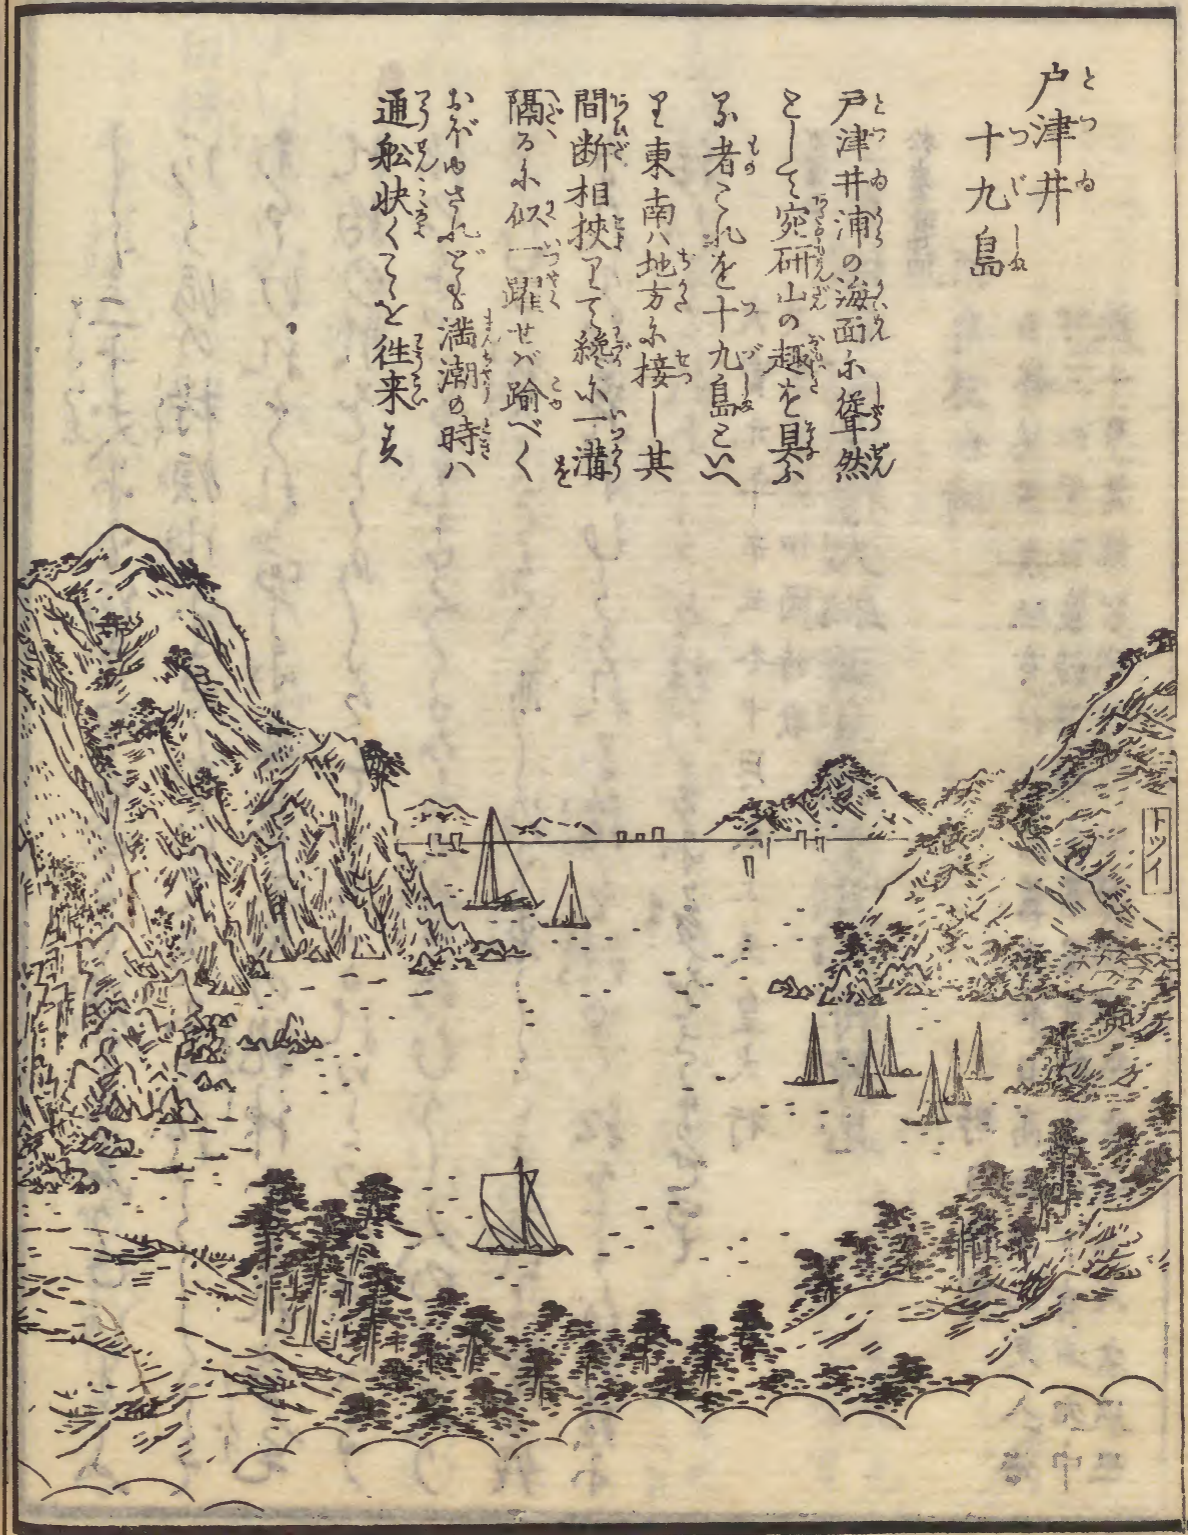 戸津井
十九島
戸津井浦の海面に聳然
として宛研山の趣を具ふ
る者これを十九島といへ
り東南ハ地方に接し其
間断相挟りて纔に一溝を
隔るに似一躍せバ踰べく
おぼゆされども満潮の時ハ
通舩快くこゝを往来す
トツイ